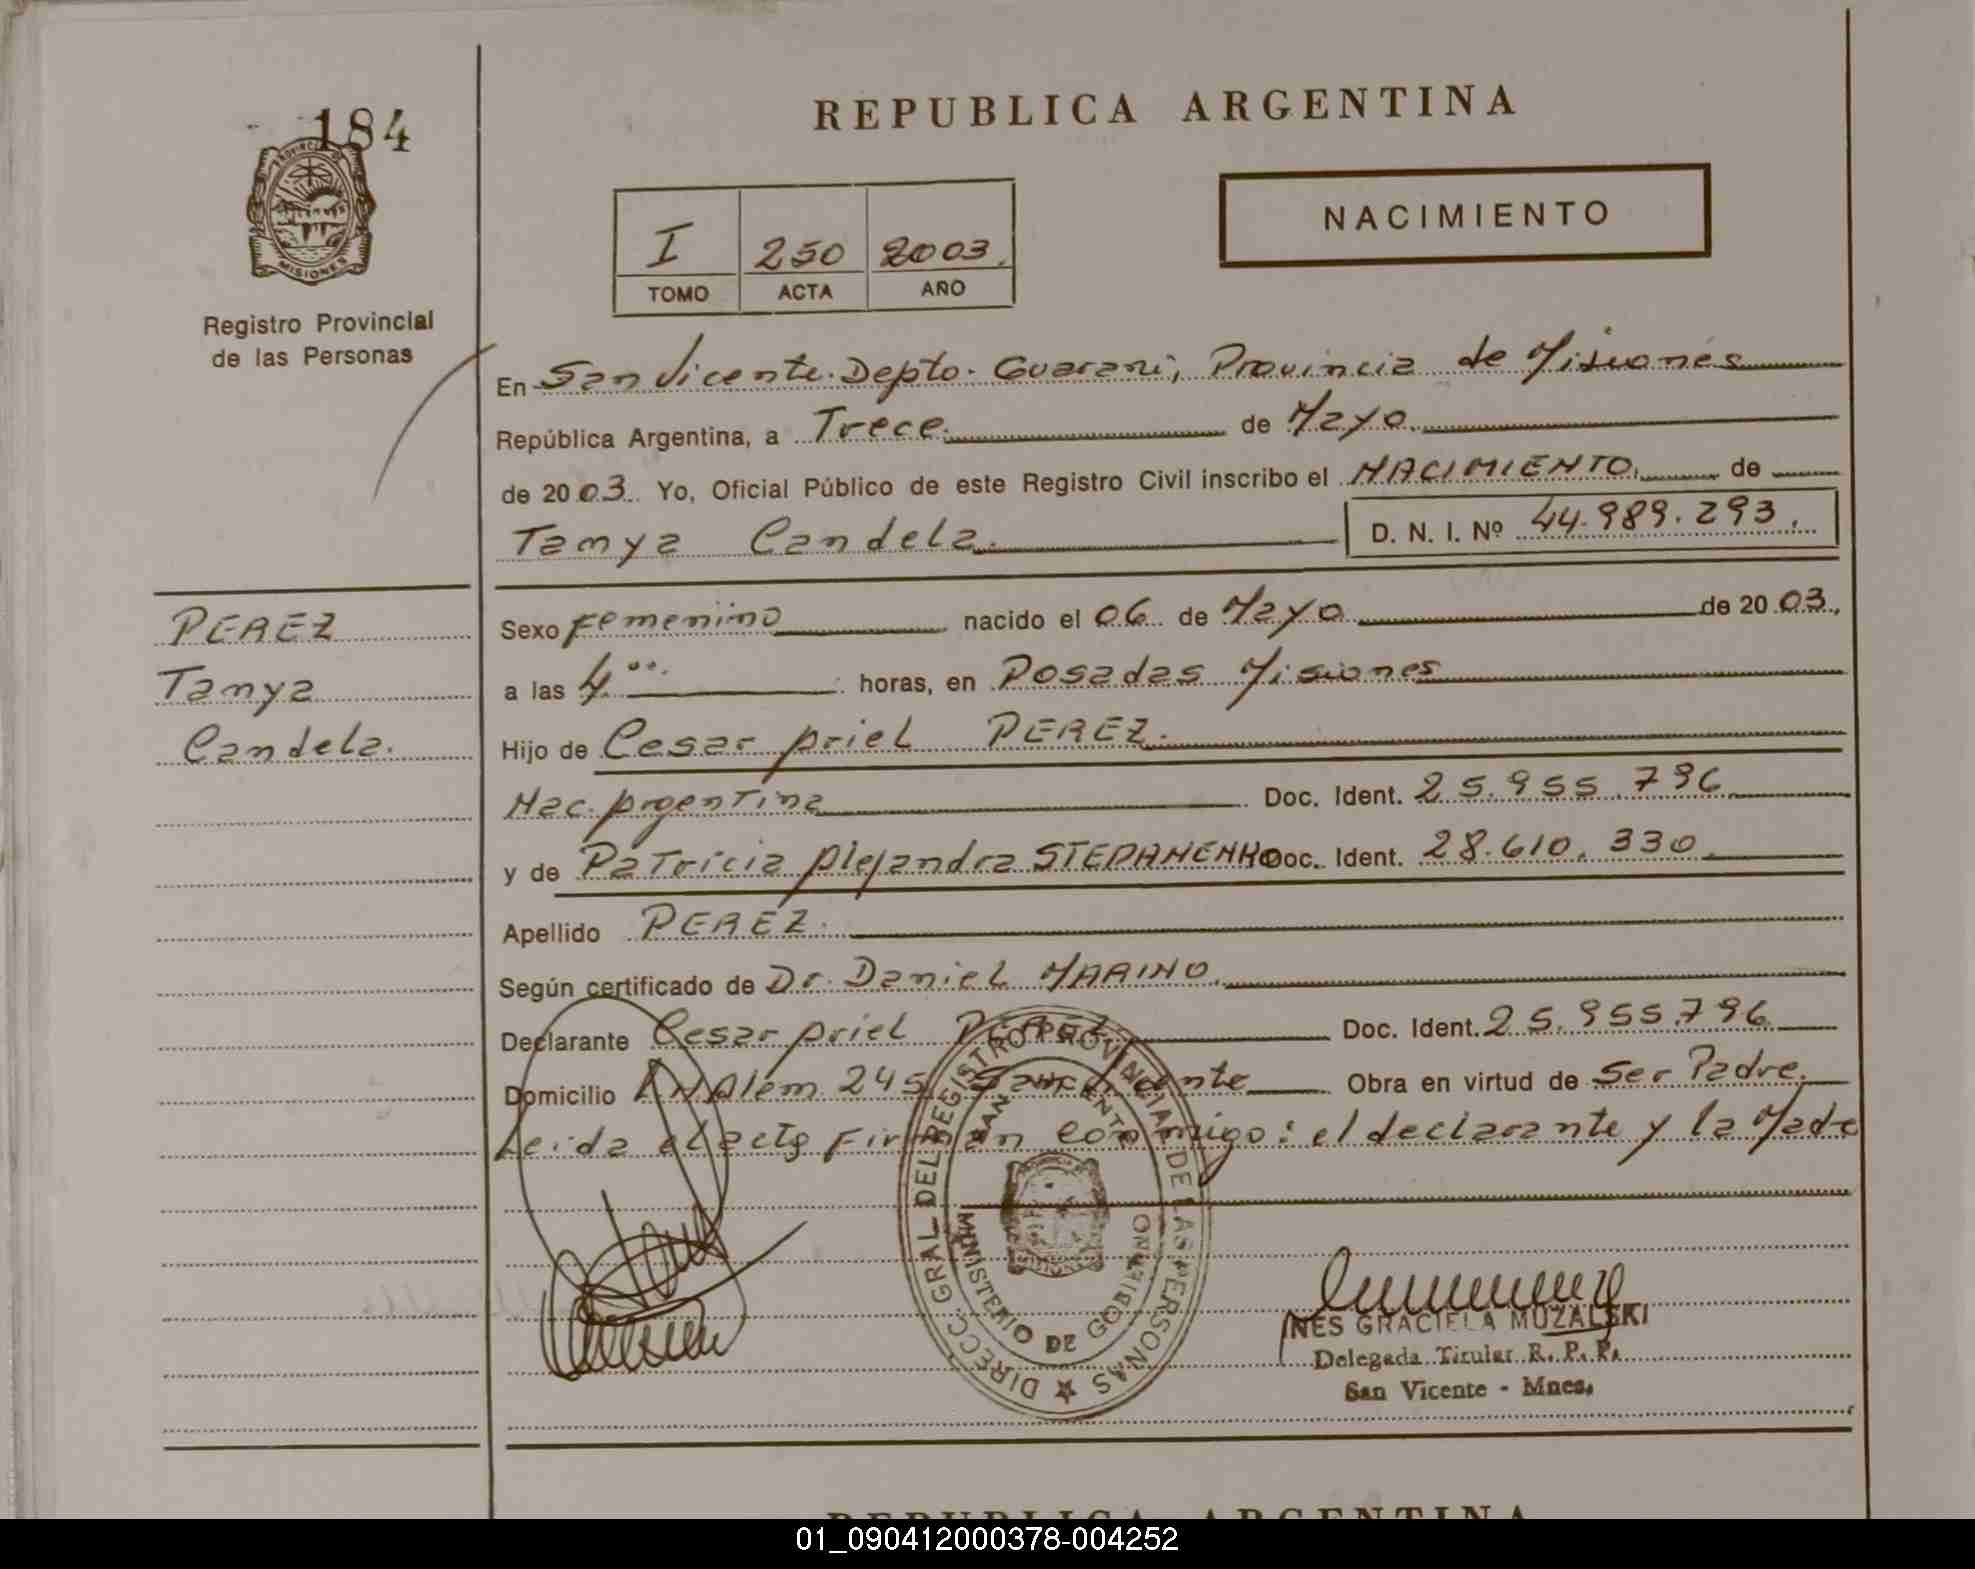 184
PROVINCIA DE
MISIONES
Registro Provincial
de las Personas
REPUBLICA ARGENTINA
NACIMIENTO
I 250 2003
TOMO ACTA AÑO
En San Vicente. Depto. Guarani, Provincia de Misiones
República Argentina, a Trece de Mayo
de 2003 Yo, Oficial Público de este Registro Civil inscribo el NACIMIENTO, de
Tanya Candela. D. N. I. Nº 44.989.293.
PEREZ
Tanya
Candela.
Sexo Femenino nacido el 06 de Mayo de 2003,
a las 4 horas, en Posadas Misiones
Hijo de Cesar Ariel PEREZ.
Nac. Argentina Doc. Ident. 25.955.796
y de Patricia Alejandra STEPANENKO Doc. Ident. 28.610.330
Apellido PEREZ.
Según certificado de Dr. Daniel MARINO.
Declarante Cesar Ariel PEREZ Doc. Ident. 25.955.796
Domicilio LN Alem 245 San Vicente Obra en virtud de Ser Padre.
Leida el acta Firman conmigo: el declarante y la Madre
DIRECC. GRAL DEL REGISTRO PROVINCIAL DE LAS PERSONAS
SAN VICENTE
MISIONES
MINISTERIO DE GOBIERNO
INES GRACIELA MUZALSKI
Delegada Titular R. P. P.
San Vicente - Mnes.
REPUBLICA ARGENTINA
01_090412000378-004252